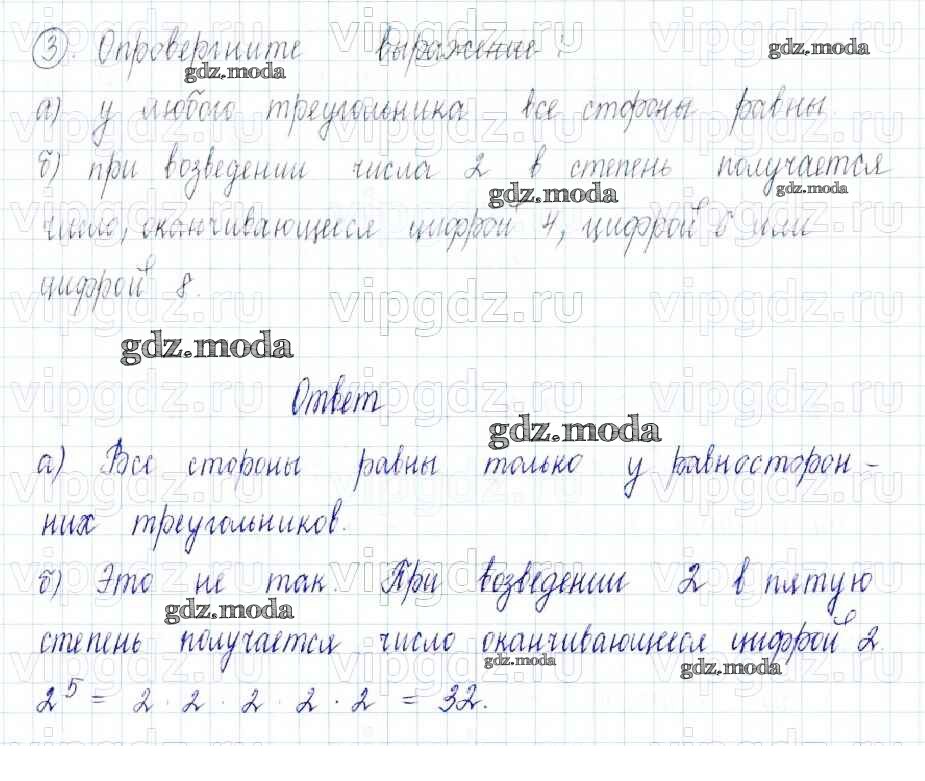 ③. Опровергните выражение:
а) у любого треугольника все стороны равны.
б) при возведении числа 2 в степень получается
число, оканчивающееся цифрой 4, цифрой 6 или
цифрой 8.
Ответ
а) Все стороны равны только у равносторон-
них треугольников.
б) Это не так. При возведении 2 в пятую
степень получается число оканчивающееся цифрой 2.
2⁵ = 2 · 2 · 2 · 2 · 2 = 32.
gdz.moda
gdz.moda
gdz.moda
gdz.moda
gdz.moda
gdz.moda
gdz.moda
gdz.moda
gdz.moda
vipgdz.ru